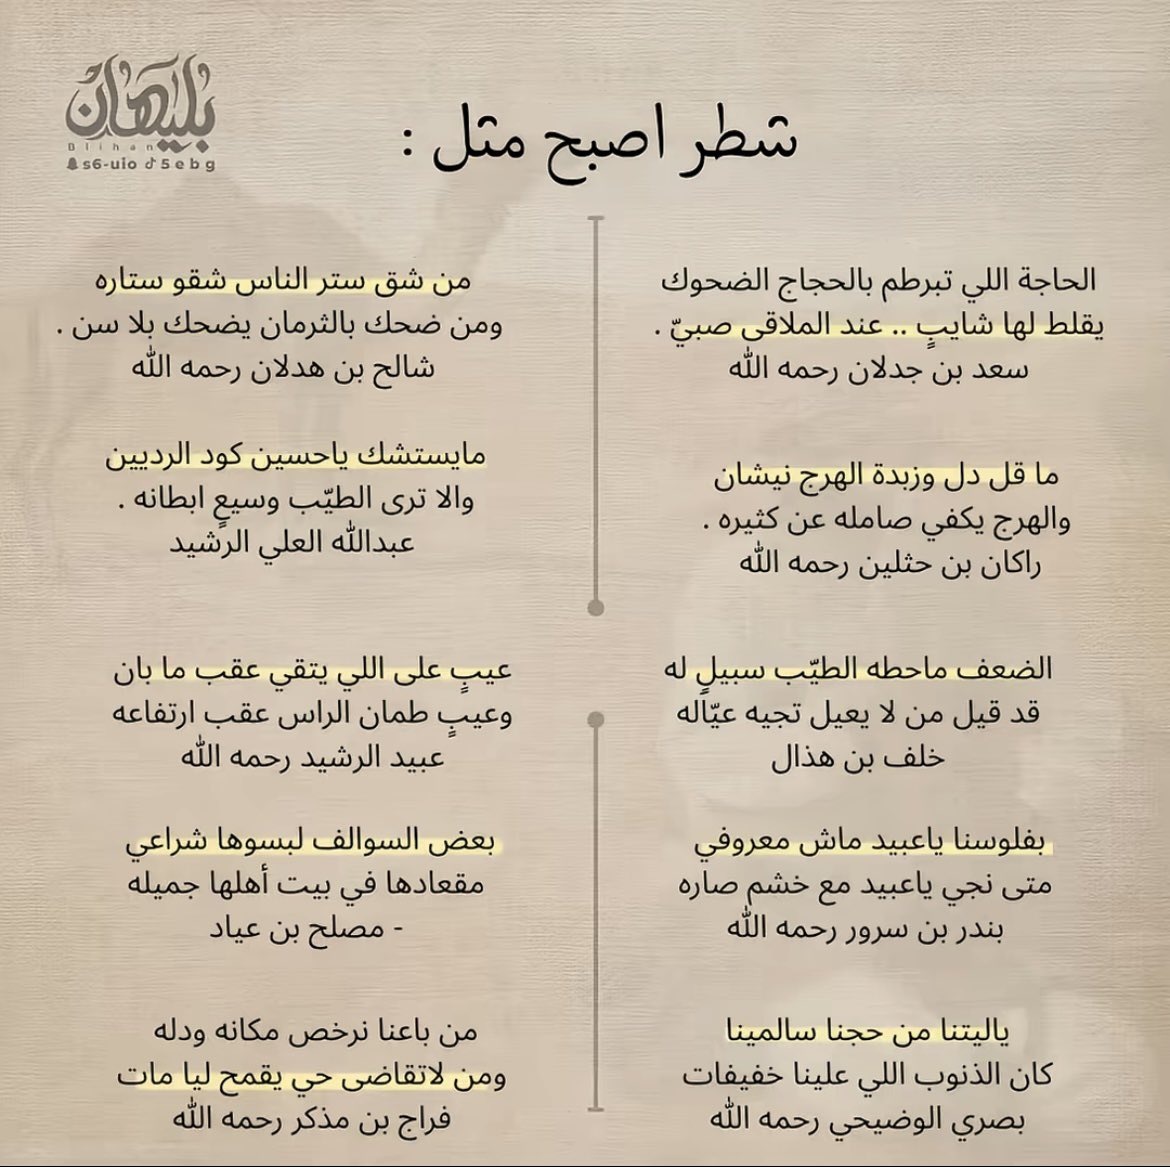 بليهان
Blihan
s6-uio 5ebg
شطر اصبح مثل :
الحاجة اللي تبرطم بالحجاج الضحوك
يقلط لها شايبٍ .. عند الملاقى صبيّ .
سعد بن جدلان رحمه الله
ما قل دل وزبدة الهرج نيشان
والهرج يكفي صامله عن كثيره .
راكان بن حثلين رحمه الله
الضعف ماحطه الطيّب سبيلٍ له
قد قيل من لا يعيل تجيه عيّاله
خلف بن هذال
بفلوسنا ياعبيد ماش معروفي
متى نجي ياعبيد مع خشم صاره
بندر بن سرور رحمه الله
ياليتنا من حجنا سالمينا
كان الذنوب اللي علينا خفيفات
بصري الوضيحي رحمه الله
من شق ستر الناس شقو ستاره
ومن ضحك بالثرمان يضحك بلا سن .
شالح بن هدلان رحمه الله
مايستشك ياحسين كود الرديين
والا ترى الطيّب وسيعٍ ابطانه .
عبدالله العلي الرشيد
عيبٍ على اللي يتقي عقب ما بان
وعيبٍ طمان الراس عقب ارتفاعه
عبيد الرشيد رحمه الله
بعض السوالف لبسوها شراعي
مقعادها في بيت أهلها جميله
- مصلح بن عياد
من باعنا نرخص مكانه ودله
ومن لاتقاضى حي يقمح ليا مات
فراج بن مذكر رحمه الله